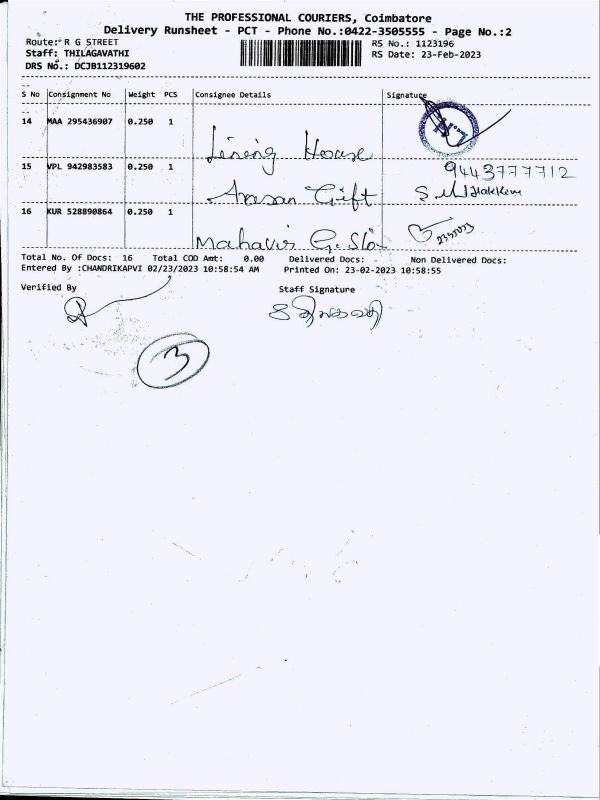 THE PROFESSIONAL COURIERS, Coimbatore
Delivery Runsheet - PCT - Phone No.:0422-3505555 - Page No.:2
Route: R G STREET
RS No.: 1123196
Staff: THILAGAVATHI
RS Date: 23-Feb-2023
DRS No.: DCJB112319602
S No Consignment No Weight PCS Consignee Details Signature
14 MAA 295436907 0.250 1
Lining House
15 VPL 942983583 0.250 1 9443777712
Arasan Gift
16 KUR 528890864 0.250 1
Mahavir G.
Total No. Of Docs: 16 Total COD Amt: 0.00 Delivered Docs: Non Delivered Docs:
Entered By :CHANDRIKAPVI 02/23/2023 10:58:54 AM Printed On: 23-02-2023 10:58:55
Verified By Staff Signature
3